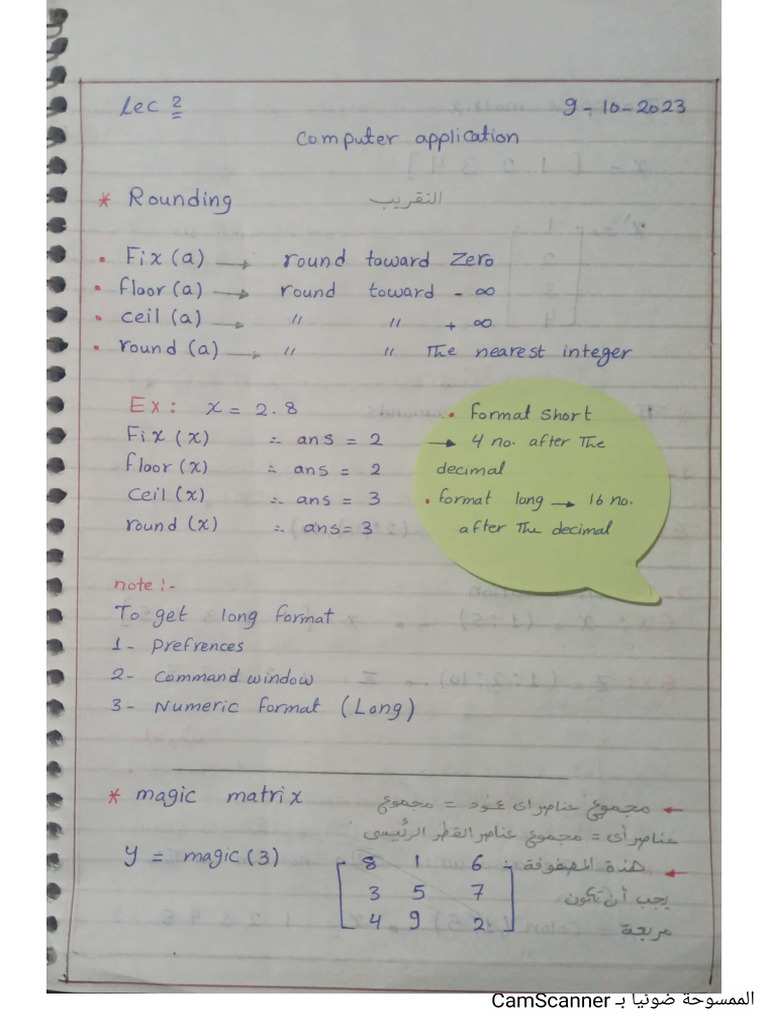 Lec 2
9-10-2023
Computer application
* Rounding التقريب
• Fix (a) → round toward Zero
• floor (a) → round toward - ∞
• ceil (a) → // // + ∞
• round (a) → // // The nearest integer
Ex: x = 2.8
Fix (x) ∴ ans = 2
floor (x) ∴ ans = 2
ceil (x) ∴ ans = 3
round (x) ∴ ans = 3
• format short
→ 4 no. after The
decimal
• format long → 16 no.
after The decimal
note :-
To get long format
1- Prefrences
2- Command window
3- Numeric format (Long)
* magic matrix
← مجموع عناصر اى عمود = مجموع
عناصر أى = مجموع عناصر القطر الرئيسى
y = magic (3)
8 1 6
3 5 7
4 9 2
← هذة المصفوفة
يجب أن تكون
مربعة
الممسوحة ضوئيا بـ CamScanner